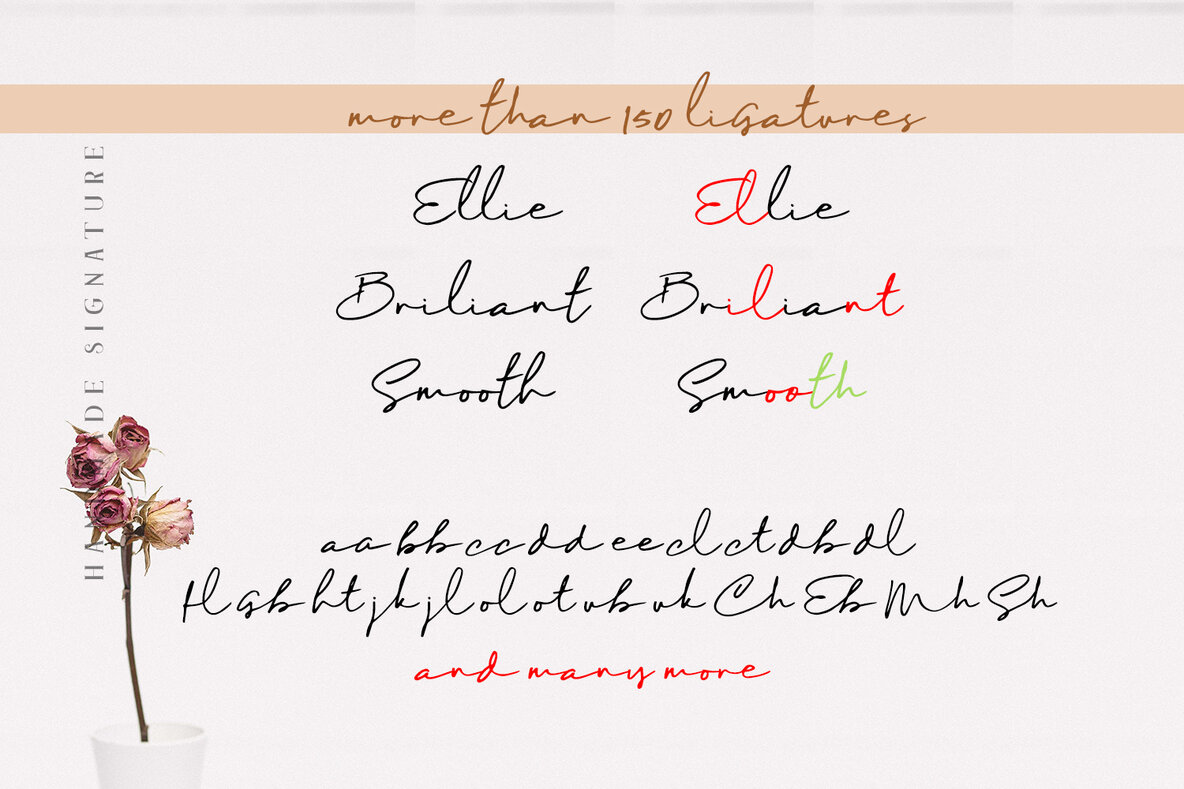 more than 150 ligatures
Ellie Ellie
Briliant Briliant
Smooth Smooth
aa bb cc dd ee cl ct db dl
fl gb ht jk jl ol ot ub uk Ch Eb Mh Sh
and many more
HANDMADE SIGNATURE